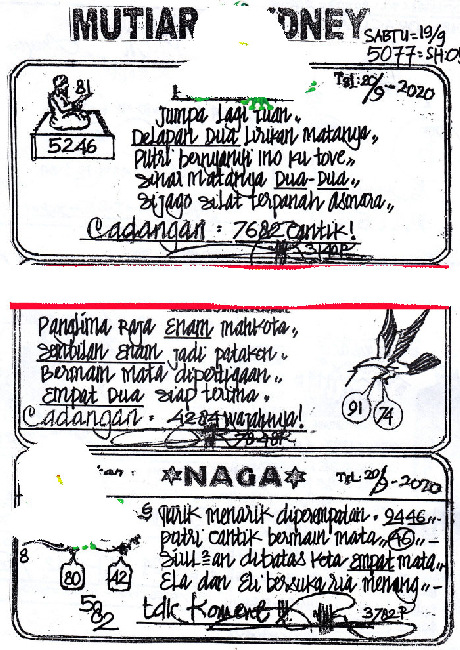 MUTIAR DNEY
SABTU=19/9
5077=SH:0
Tgl: 20/9-2020
81
5246
Jumpa Lagi Tuan,,
Delapan Dua Lirikan matanya,,
Putri bernyanyi ino ku tove,,
Sinar matanya Dua-Dua,,
Sijago silat terpanah asmara,,
Cadangan : 7682 Cantik!
Panglima Raja Enam mahkota,,
Sembilan Enam jadi patokan,,
Bermain mata dipertigaan,,
Empat Dua siap terima,,
Cadangan : 4284 wajahnya!
91 74
NAGA
Tgl: 20/9-2020
Tarik menarik diperempatan : 9446,,-
Putri cantik bermain mata,, 46,,-
diatas kota empat mata,,
Ela dan Eli bersuka ria menang,,-
8
80 42
tdk Koment !!!
3782P